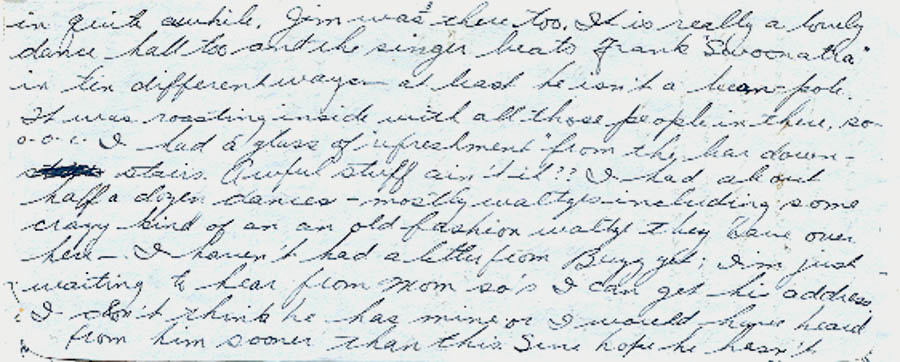 in quite awhile. Jim was there too. It is really a lovely
dance hall too ant the singer beats Frank Swoonatra"
in ten different ways — at least he isn't a bean-pole.
It was roasting inside with all those people in there, so-
o-o-o- I had a glass of "refreshment" from the bar down-
stairs. Awful stuff ain't it?? I had about
half a dozen dances - mostly waltzes including some
crazy kind of an an old fashion waltz they have over
here-. I haven't had a letter from Buzz yet; I'm just
waiting to hear from Mom so's I can get his address,
I don't think he has mine or I would have heard
from him sooner than this. Sure hope he hasn't